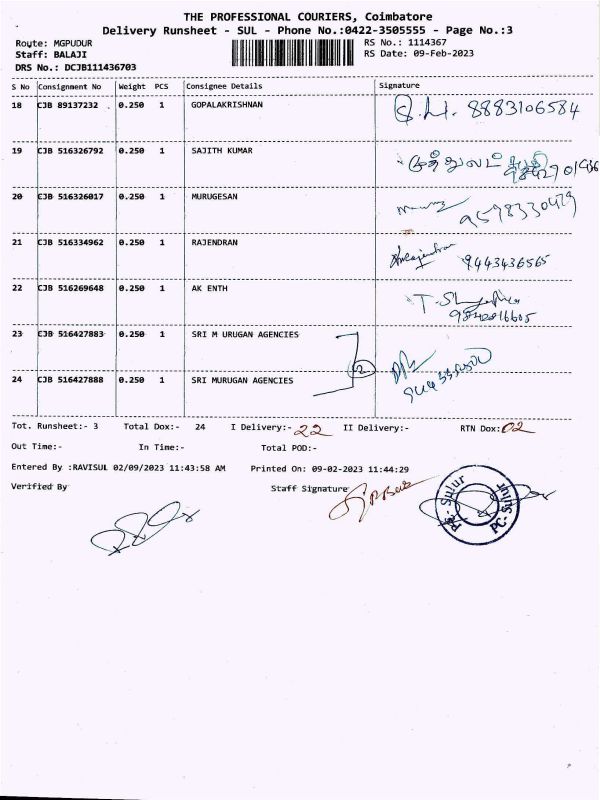 THE PROFESSIONAL COURIERS, Coimbatore
Delivery Runsheet - SUL - Phone No.:0422-3505555 - Page No.:3
Route: MGPUDUR RS No.: 1114367
Staff: BALAJI RS Date: 09-Feb-2023
DRS No.: DCJB111436703
S No Consignment No Weight PCS Consignee Details Signature
18 CJB 89137232 0.250 1 GOPALAKRISHNAN 8883106584
19 CJB 516326792 0.250 1 SAJITH KUMAR
20 CJB 516326017 0.250 1 MURUGESAN
21 CJB 516334962 0.250 1 RAJENDRAN 9443436565
22 CJB 516269648 0.250 1 AK ENTH
23 CJB 516427883 0.250 1 SRI M URUGAN AGENCIES
2
24 CJB 516427888 0.250 1 SRI MURUGAN AGENCIES
Tot. Runsheet:- 3 Total Dox:- 24 I Delivery:- 22 II Delivery:- RTN Dox: 02
Out Time:- In Time:- Total POD:-
Entered By :RAVISUL 02/09/2023 11:43:58 AM Printed On: 09-02-2023 11:44:29
Verified By Staff Signature
PC-Sulur
PC-Sulur